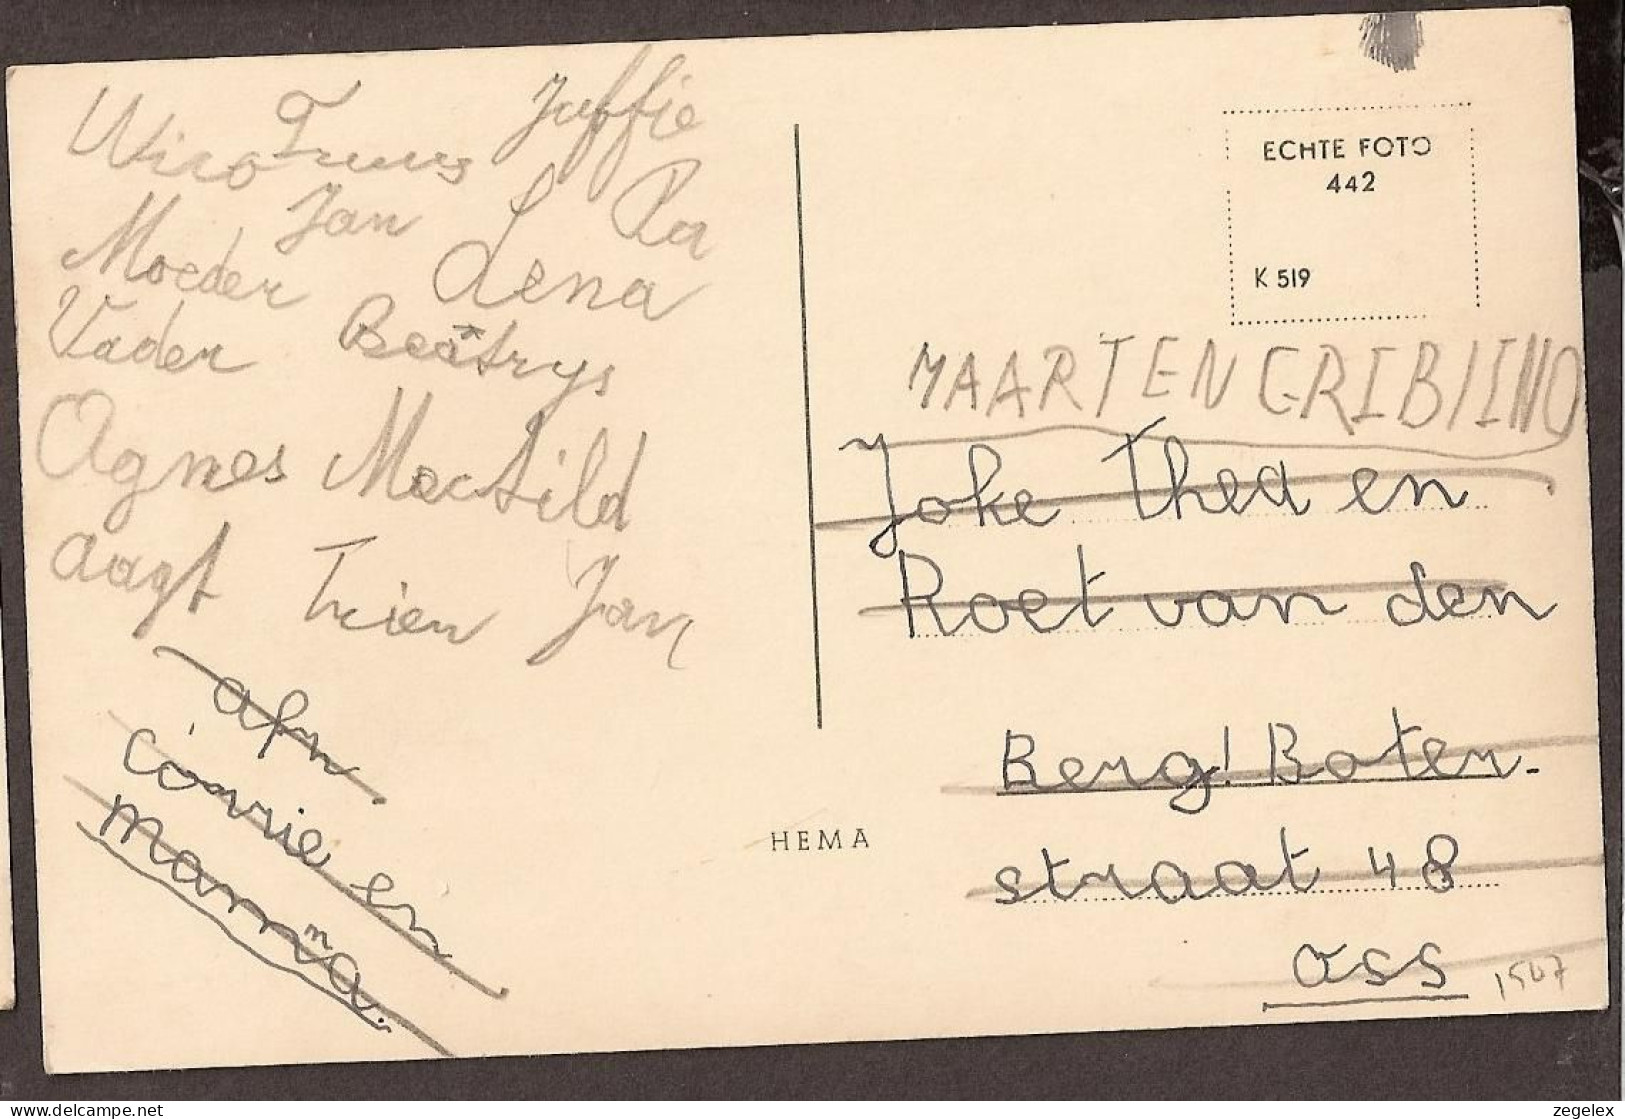 Wiro Truus Juffie
Jan Pa
Moeder Lena
Vader Beatrys
Agnes Mechtild
Aagt Trien Jan
afn
Corrie en
Mamma.
HEMA
ECHTE FOTO
442
K 519
MAARTEN
Joke Thea en
Roet van den
Berg! Boter-
straat 48
Oss
1507
delcampe.net
zegelex